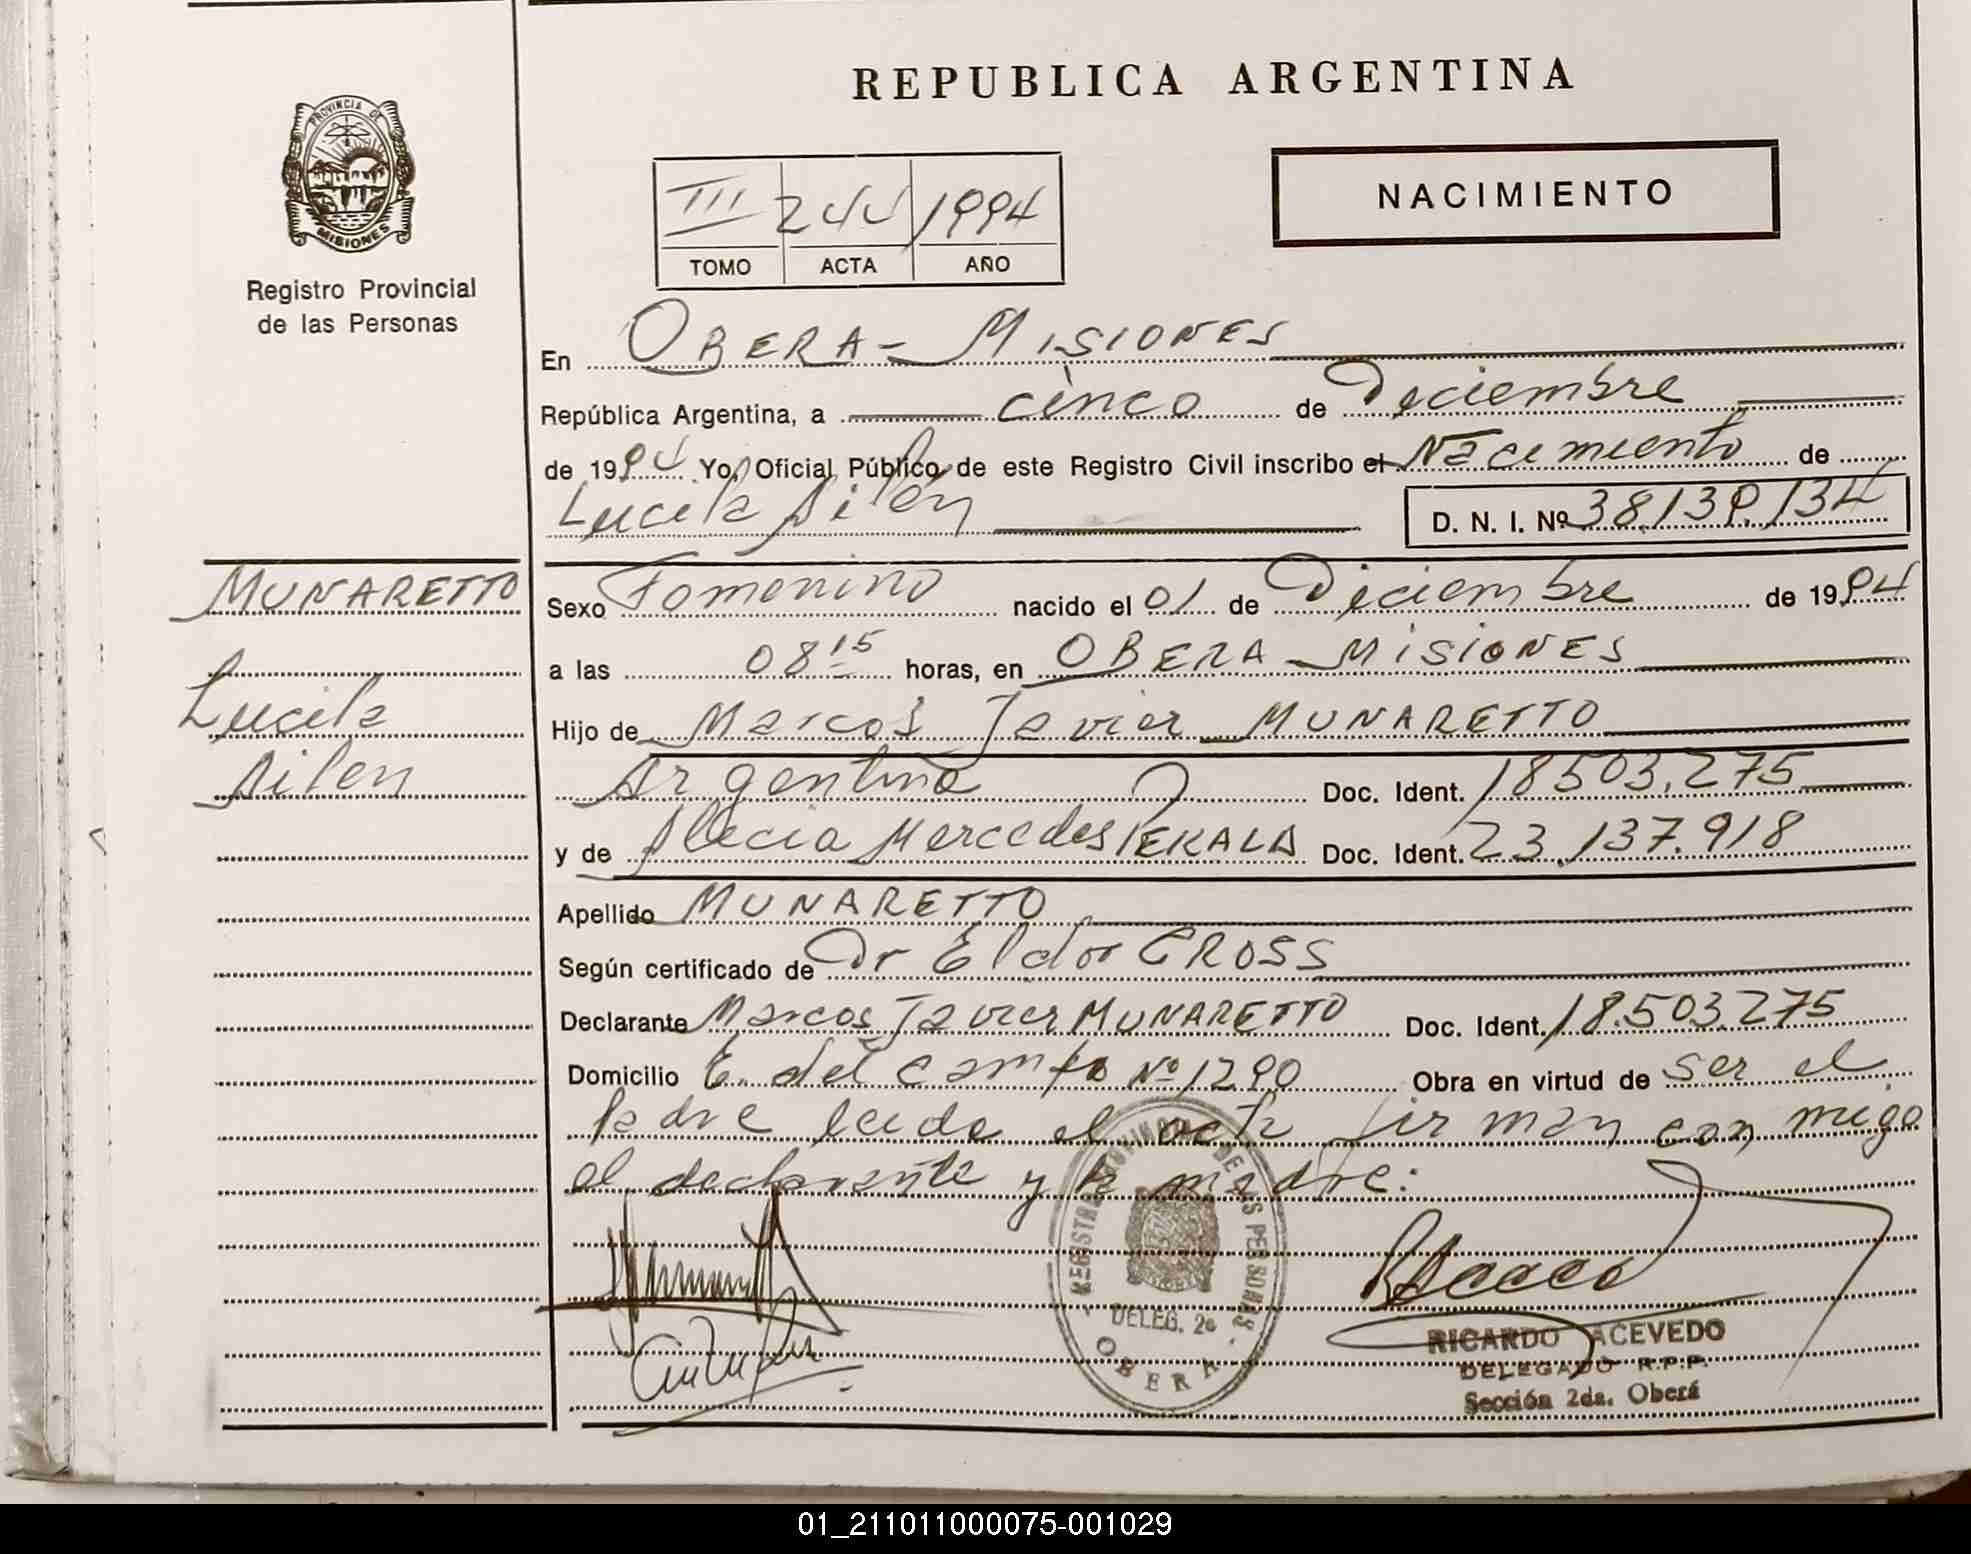 REPUBLICA ARGENTINA
PROVINCIA DE
MISIONES
Registro Provincial
de las Personas
III 244 1994
TOMO ACTA AÑO
NACIMIENTO
En OBERA - MISIONES
República Argentina, a cinco de Diciembre
de 1994 Yo, Oficial Público de este Registro Civil inscribo el Nacimiento de
Lucila Ailén D. N. I. Nº 38.139.134
MUNARETTO
Lucila
Ailen
Sexo Femenino nacido el 01 de Diciembre de 1994
a las 08 15 horas, en OBERA - MISIONES
Hijo de Marcos Javier MUNARETTO
Argentina Doc. Ident. 18503.275
y de Mercedes Doc. Ident. 23.137.918
Apellido MUNARETTO
Según certificado de Dr Eldor CROSS
Declarante Marcos Javier MUNARETTO Doc. Ident. 18.503.275
Domicilio E. del campo Nº 1290 Obra en virtud de ser el
padre leida el acta firman con migo
el declarante y la madre:
REGISTRO PROVINCIAL DE LAS PERSONAS
DELEG. 2a
OBERA
RICARDO ACEVEDO
DELEGADO R.P.P.
Sección 2da. Oberá
01_211011000075-001029